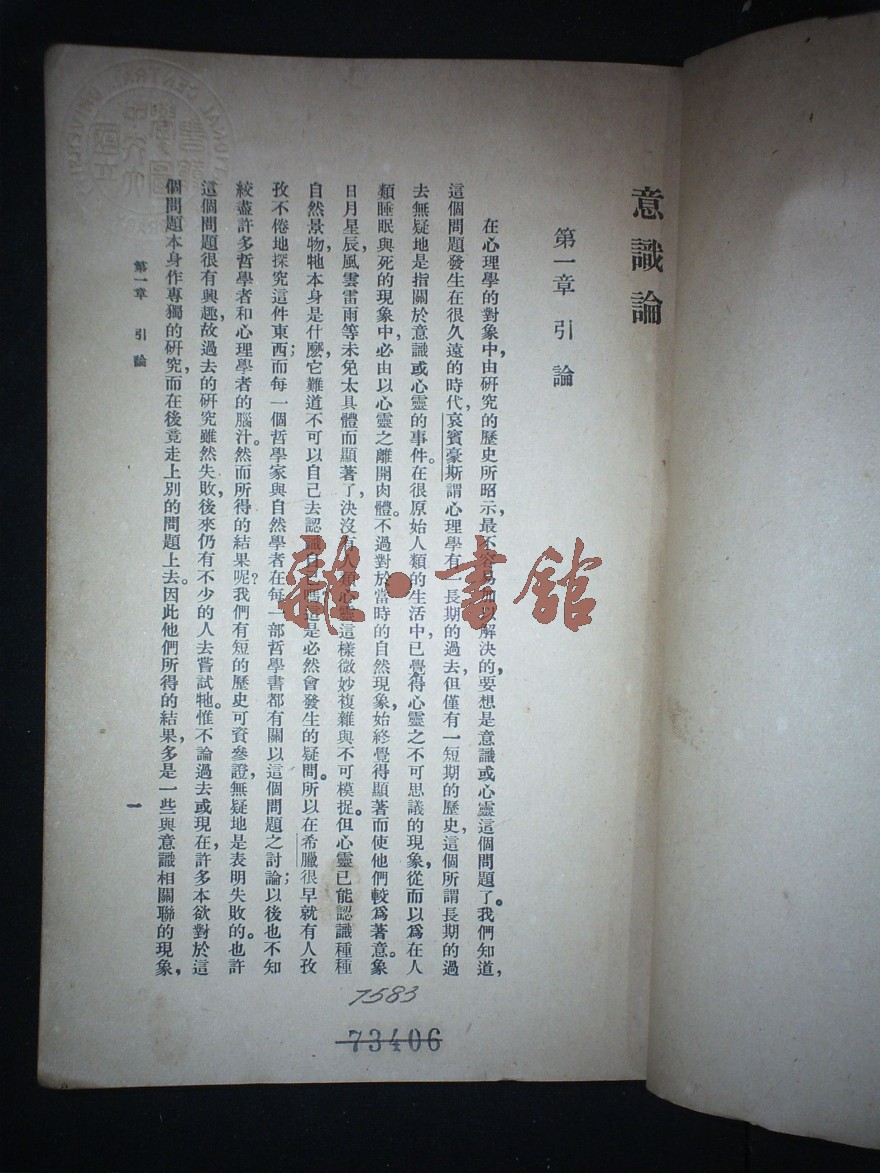 意識論
第一章 引論
在心理學的對象中，由研究的歷史所昭示，最不容易加以解決的，要想是意識或心靈這個問題了。我們知道，
這個問題發生在很久遠的時代，哀賓豪斯謂心理學有一長期的過去，但僅有一短期的歷史，這個所謂長期的過
去無疑地是指關於意識或心靈的事件。在很原始人類的生活中，已覺得心靈之不可思議的現象，從而以爲在人
類睡眠與死的現象中，必由以心靈之離開肉體。不過對於當時的自然現象，始終覺得顯著而使他們較爲著意。象
日月星辰，風雲雷雨等未免太具體而顯著了，決沒有人類心靈這樣微妙複雜與不可模捉。但心靈已能認識種種
自然景物，牠本身是什麼，它難道不可以自己去認識自己嗎？這是必然會發生的疑問。所以在希臘很早就有人孜
孜不倦地探究這件東西；而每一個哲學家與自然學者在每一部哲學書都有關以這個問題之討論；以後也不知
絞盡許多哲學者和心理學者的腦汁。然而所得的結果呢？我們有短的歷史可資參證，無疑地是表明失敗的。也許
這個問題很有興趣，故過去的研究雖然失敗，後來仍有不少的人去嘗試牠。惟不論過去或現在，許多本欲對於這
個問題本身作專獨的研究，而在後竟走上別的問題上去。因此他們所得的結果，多是一些與意識相關聯的現象，
第一章 引論
一
7583
73406
雜·書館